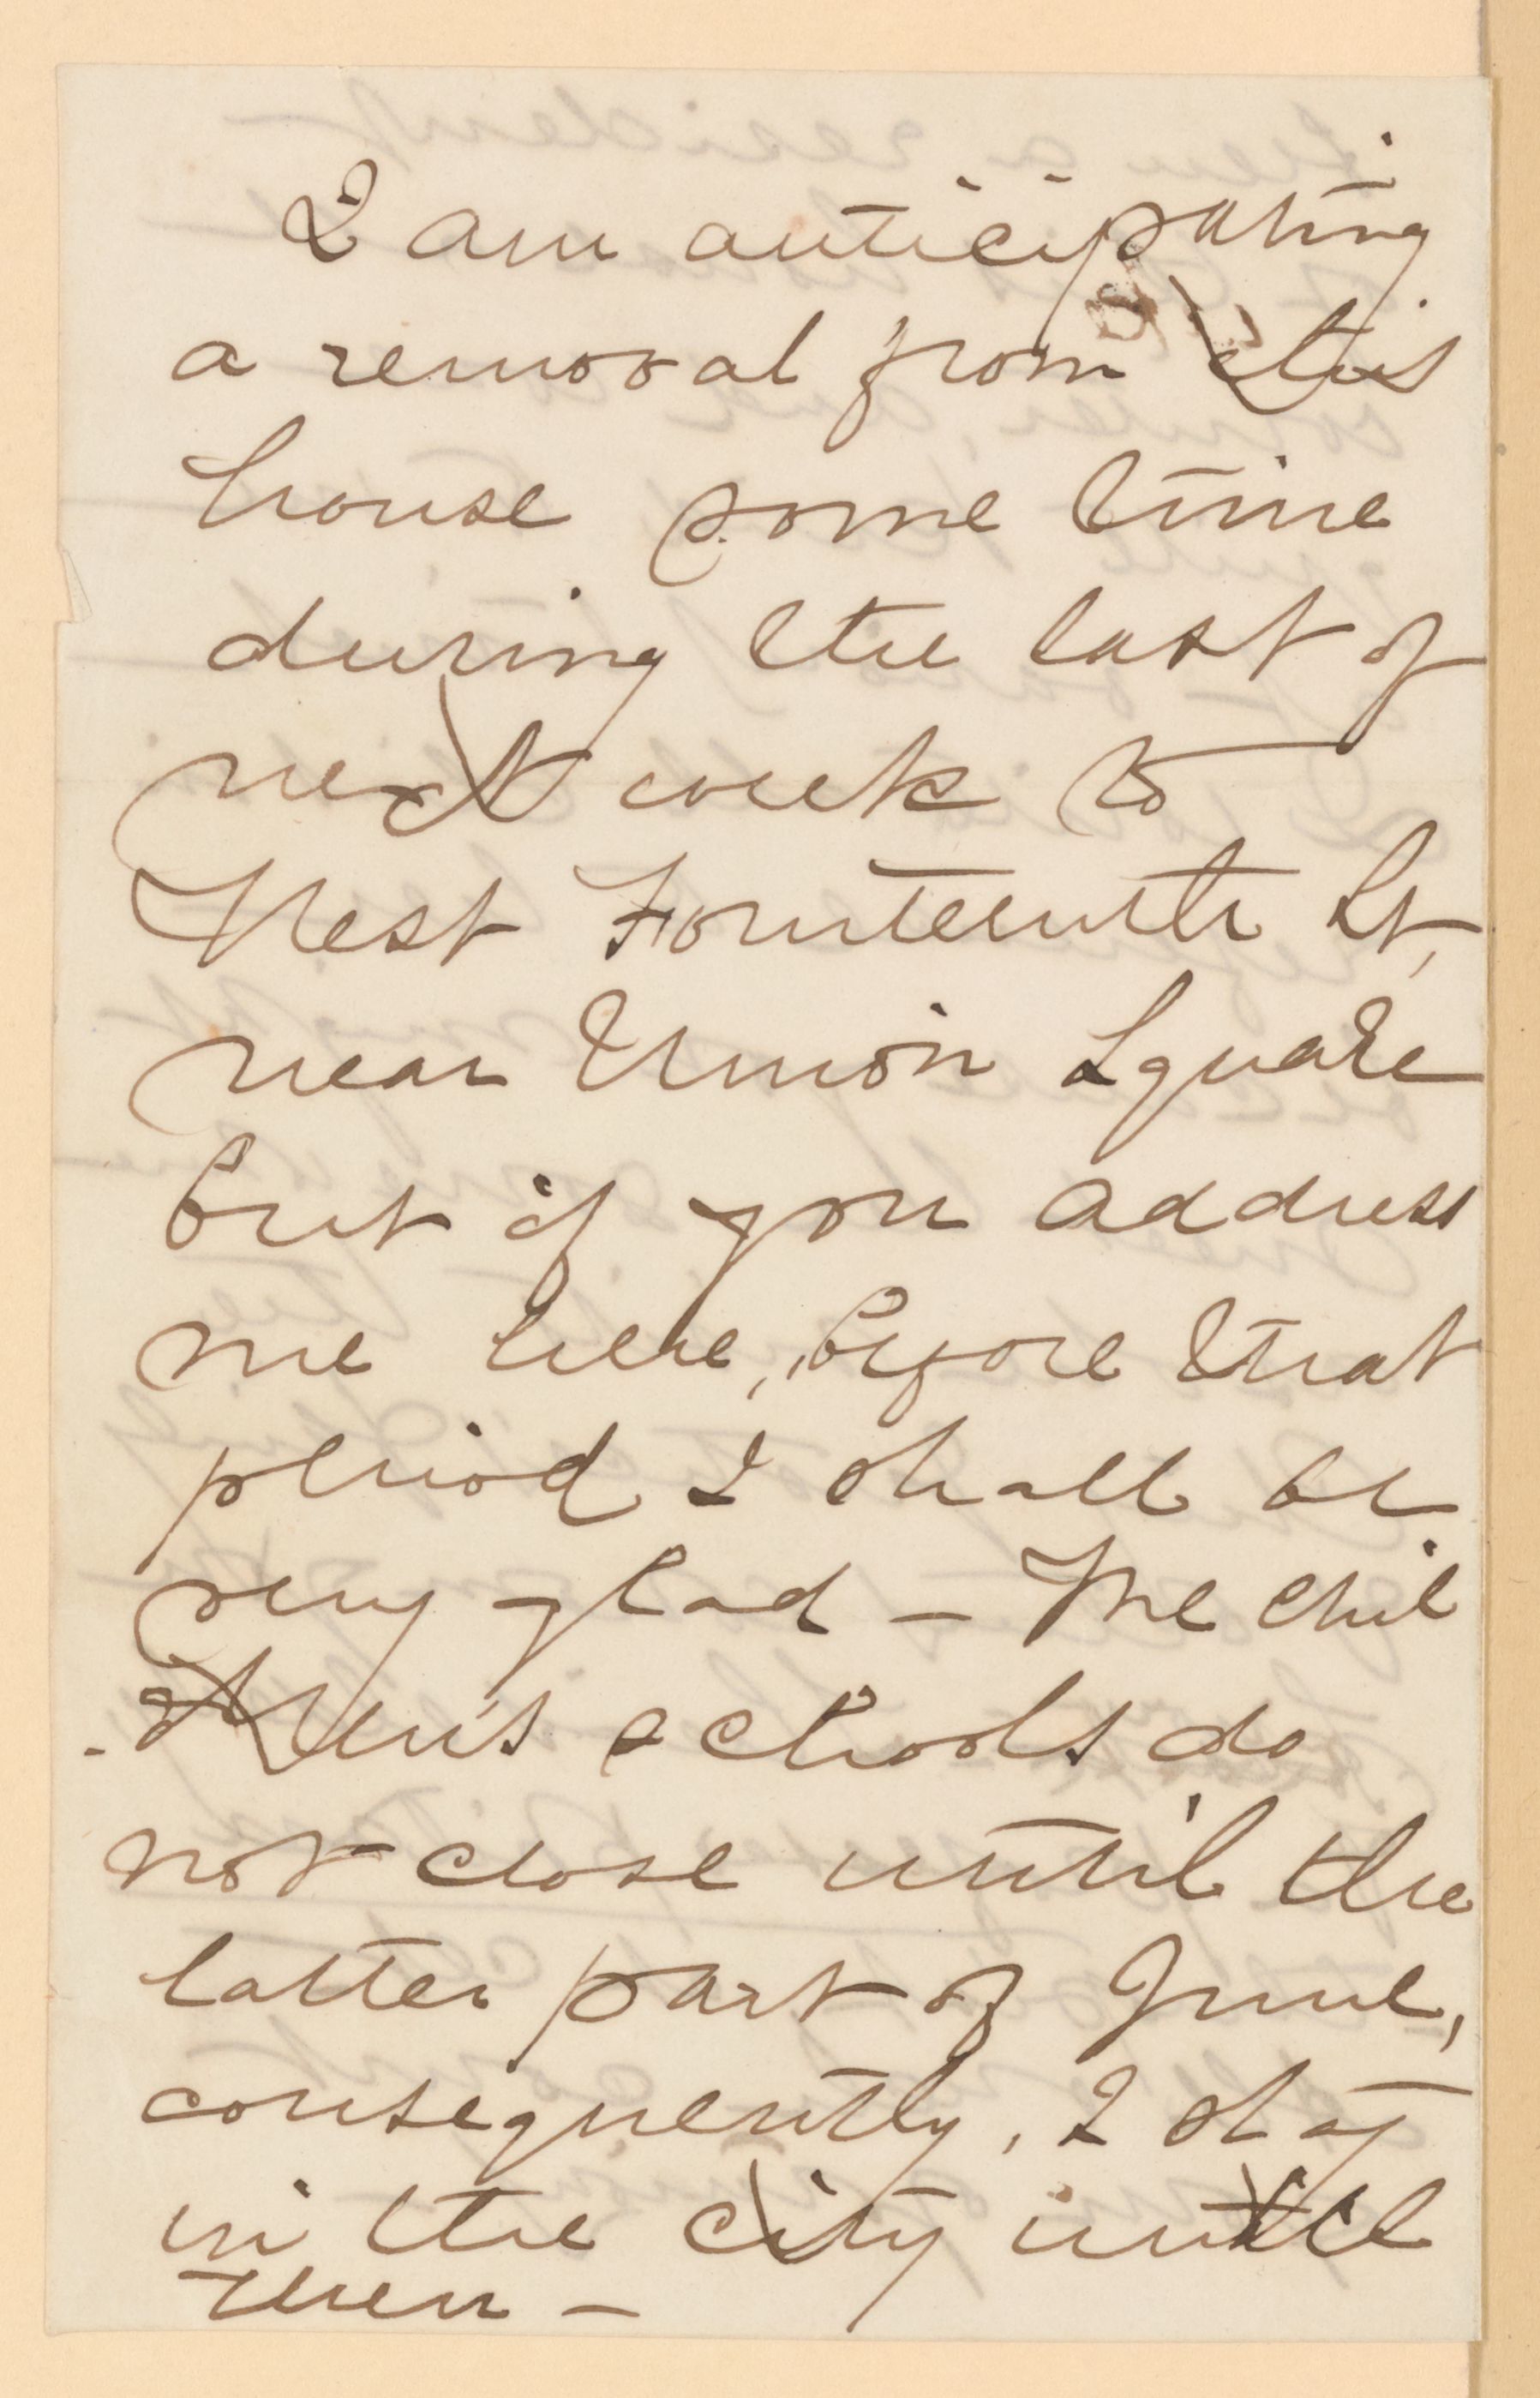 I am anticipating
a removal from this
house some time
during the last of
next week to
West Fourteenth St,
near Union Square
but if you address
me here, before that
period I shall be
very glad — The chil
-dren's schools do
not close until the
latter part of June,
consequently, I stay
in the city until
then —